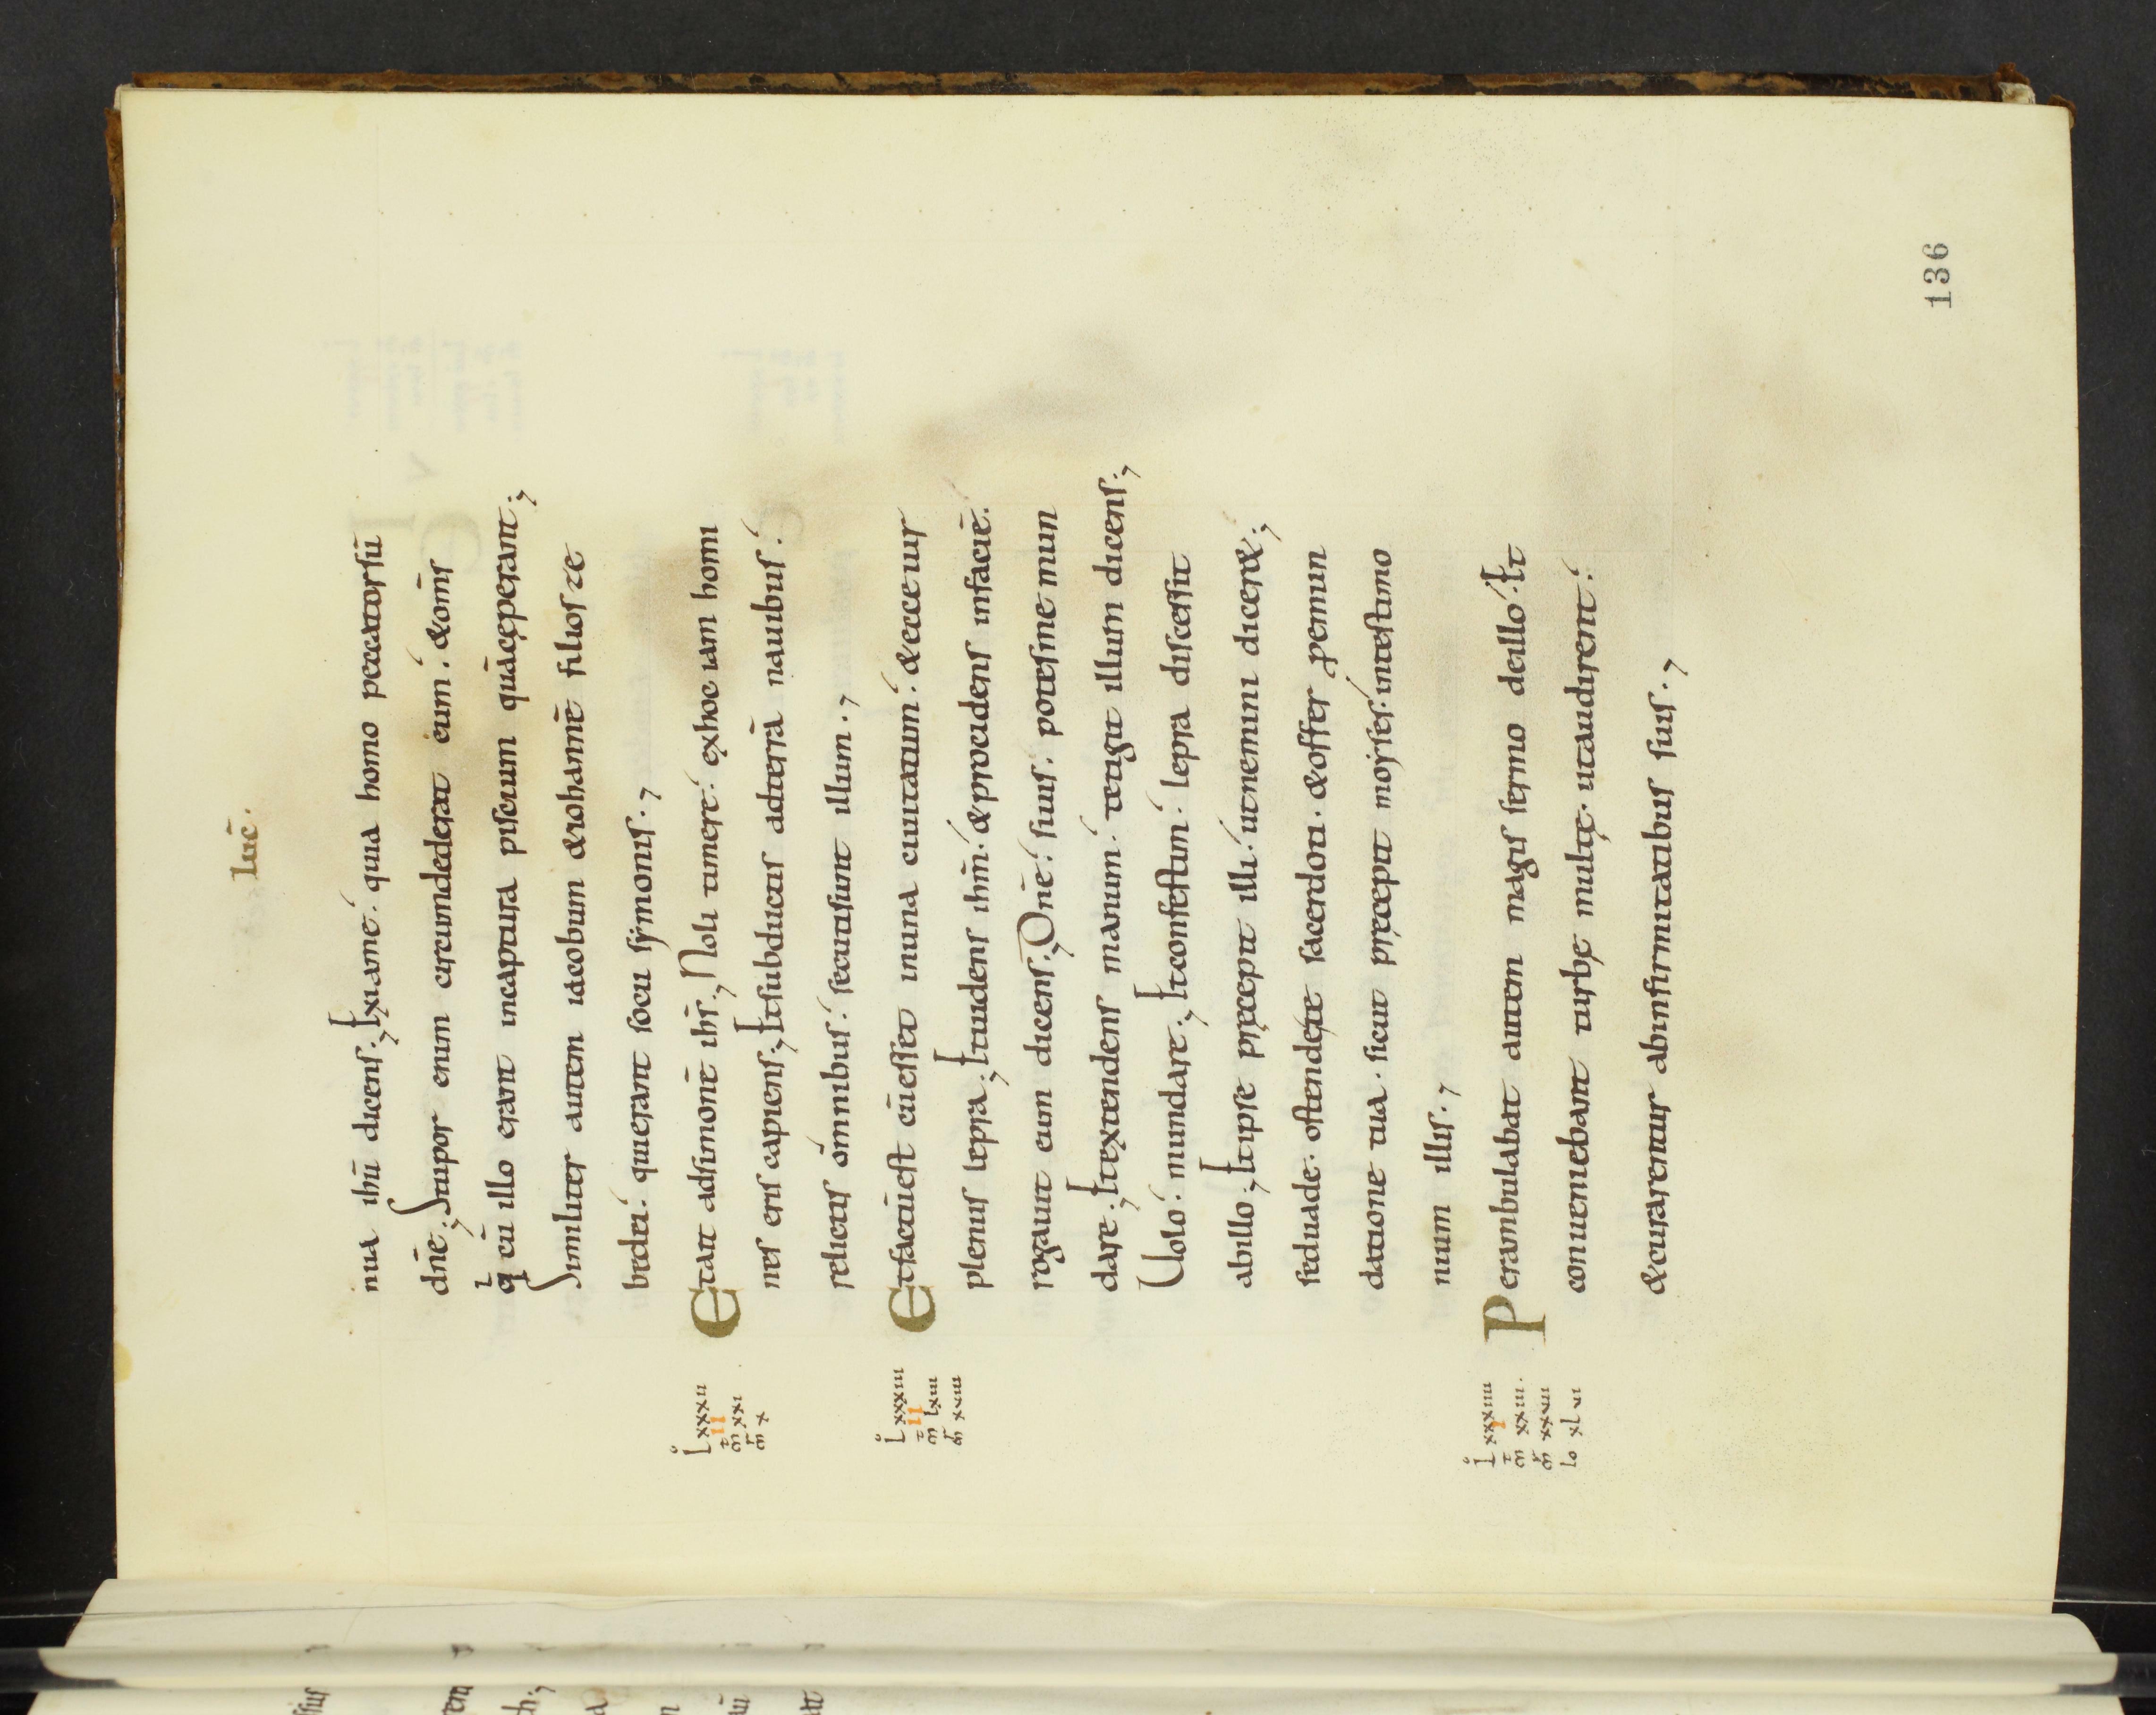 Luc̄.
nua ihū dicens·, Exiame·́ quia homo peccatorsū
dn̄e·, Stupor enim circumdederat eum·́ &om̄s
qⁱ cū illo erant incaptura piscium quācęperant·,
Similiter autem iacobum &iohannē filios ze
bedei·́ quierant socii sẏmonis·,
Etait adsimonē ihs̄·, Noli timere·́ exhoc iam homi
nes eris capiens·, Etsubductis adterrā nauibus·́
relictis omnibus·́ secutisunt illum·,
Etfactūest cūesset inuna ciuitatum·́ &ecceuir
plenus lepra·, Etuidens ihm̄·́ &procidens infaciē·
rogauit eum dicens·, Dn̄e·́ siuis· potesme mun
dare·, Etextendens manum·́ tetigit illum dicens·,
Uolo·́ mundare·, Etconfestim·́ lepra discessit
abillo·, Etipse pręcepit illi·́ utnemini dicer&·,
seduade· ostendete sacerdoti· &offer ꝓemun
datione tua· sicut pręcepit moẏses·́ intestimo
nium illis·,
Perambulabat autem magis sermo deillo·́ Et
conueniebant turbę multę· utaudirent·́
&curarentur abinfirmitatibus suis·,
L̊ xxxii
II
m̄t xxi
m̄r x
L̊ xxxiii
II
m̄t lxiii
m̄r xviii
L̊ xxxiiii
I
m̄t xxiii·
m̄r xxvii
Io xlvi
136